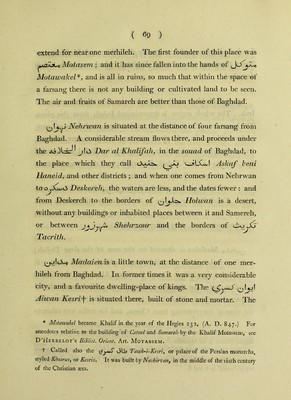 ( 69 )
extend for near one merhileh. The first founder of this place was
معتصم Motasem; and it has since fallen into the hands of متوكل
Motawakel*, and is all in ruins, so much that within the space of
a farsang there is not any building or cultivated land to be seen.
The air and fruits of Samareh are better than those of Baghdad.
نهروان Nehrwan is situated at the distance of four farsang from
Baghdad. A considerable stream flows there, and proceeds under
the دار الخليفه Dar al Khalifah, in the souad of Baghdad, to
the place which they call اسكاف بني حنيد Askaf beni
Haneid, and other districts; and when one comes from Nehrwan
to دسكره Deskereh, the waters are less, and the dates fewer: and
from Deskereh to the borders of حلوان Holwan is a desert,
without any buildings or inhabited places between it and Samereh,
or between شهرزور Shehrzour and the borders of تكريت
Tacrith.
مداين Madaien is a little town, at the distance of one mer-
hileh from Baghdad. In former times it was a very considerable
city, and a favourite dwelling-place of kings. The ايوان كسري
Aiwan Kesri† is situated there, built of stone and mortar. The
* Motawakel became Khalif in the year of the Hegira 232, (A. D. 847.) For
anecdotes relative to the building of Cateul and Samarah by the Khalif Motassem, see
D'Herbelot's Biblíot. Orient. Art. Motassem.
† Called also the طاق كسري Tauk-i-Kesri, or palace of the Persian monarchs,
styled Khusrau, or Kesris. It was built by Nushirvan, in the middle of the sixth century
of the Christian æra.